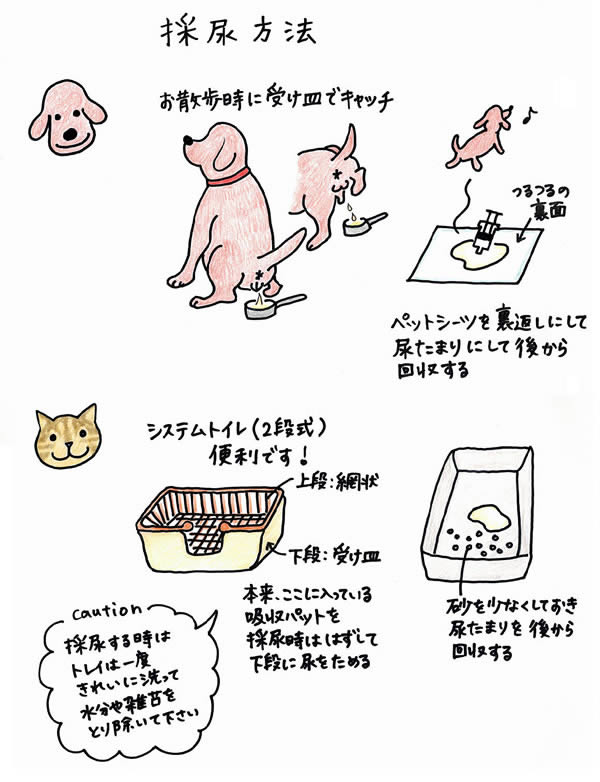 採尿方法
お散歩時に受け皿でキャッチ
つるつるの
裏面
ペットシーツを裏返しにして
尿たまりにして後から
回収する
システムトイレ(2段式)
便利です!
上段:網状
下段:受け皿
本来、ここに入っている
吸収パットを
採尿時ははずして
下段に尿をためる
砂を少なくしておき
尿たまりを後から
回収する
caution
採尿する時は
トレイは一度
きれいに洗って
水分や雑菌を
とり除いて下さい